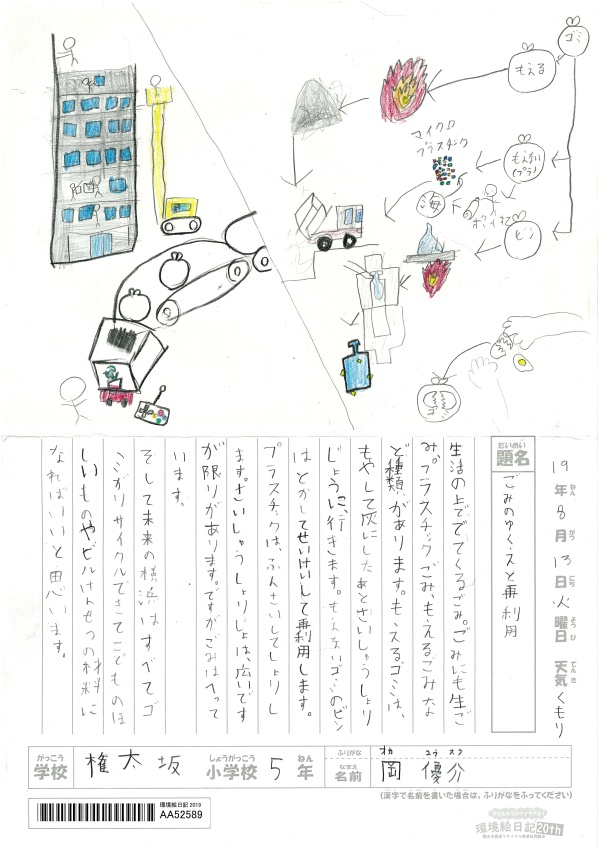 ゴミ
もえる
マイクロ
プラスチック
もえない
(プラ)
海
ポイ捨て
ビン
ゴミ
19年8月13日火曜日 天気くもり
ねん がつ にち ようび てんき
だいめい
題名
ごみのゆくえと再利用
生活の上ででてくるごみ。ごみにも生ご
み。プラスチックごみ、もえるごみな
ど種類があります。もえるゴミは、
もやして灰にしたあとさいしゅうしょり
じょうに行きます。もえないゴミのビン
はとかしてせいけいして再利用します。
プラスチックは、ふんさいしてしょりし
ます。さいしゅうしょりじょは、広いです
が限りがあります。ですがごみはへって
います。
そして未来の横浜はすべてゴ
ミがリサイクルできてこどものほ
しいものやビルけんせつの材料に
なればいいと思います。
がっこう
学校
権太坂
しょうがっこう
小学校
5
ねん
年
ふりがな
オカ ユウ スケ
なまえ
名前
岡 優介
(漢字で名前を書いた場合は、ふりがなをふってください)
環境絵日記 2019
AA52589
環境絵日記20th